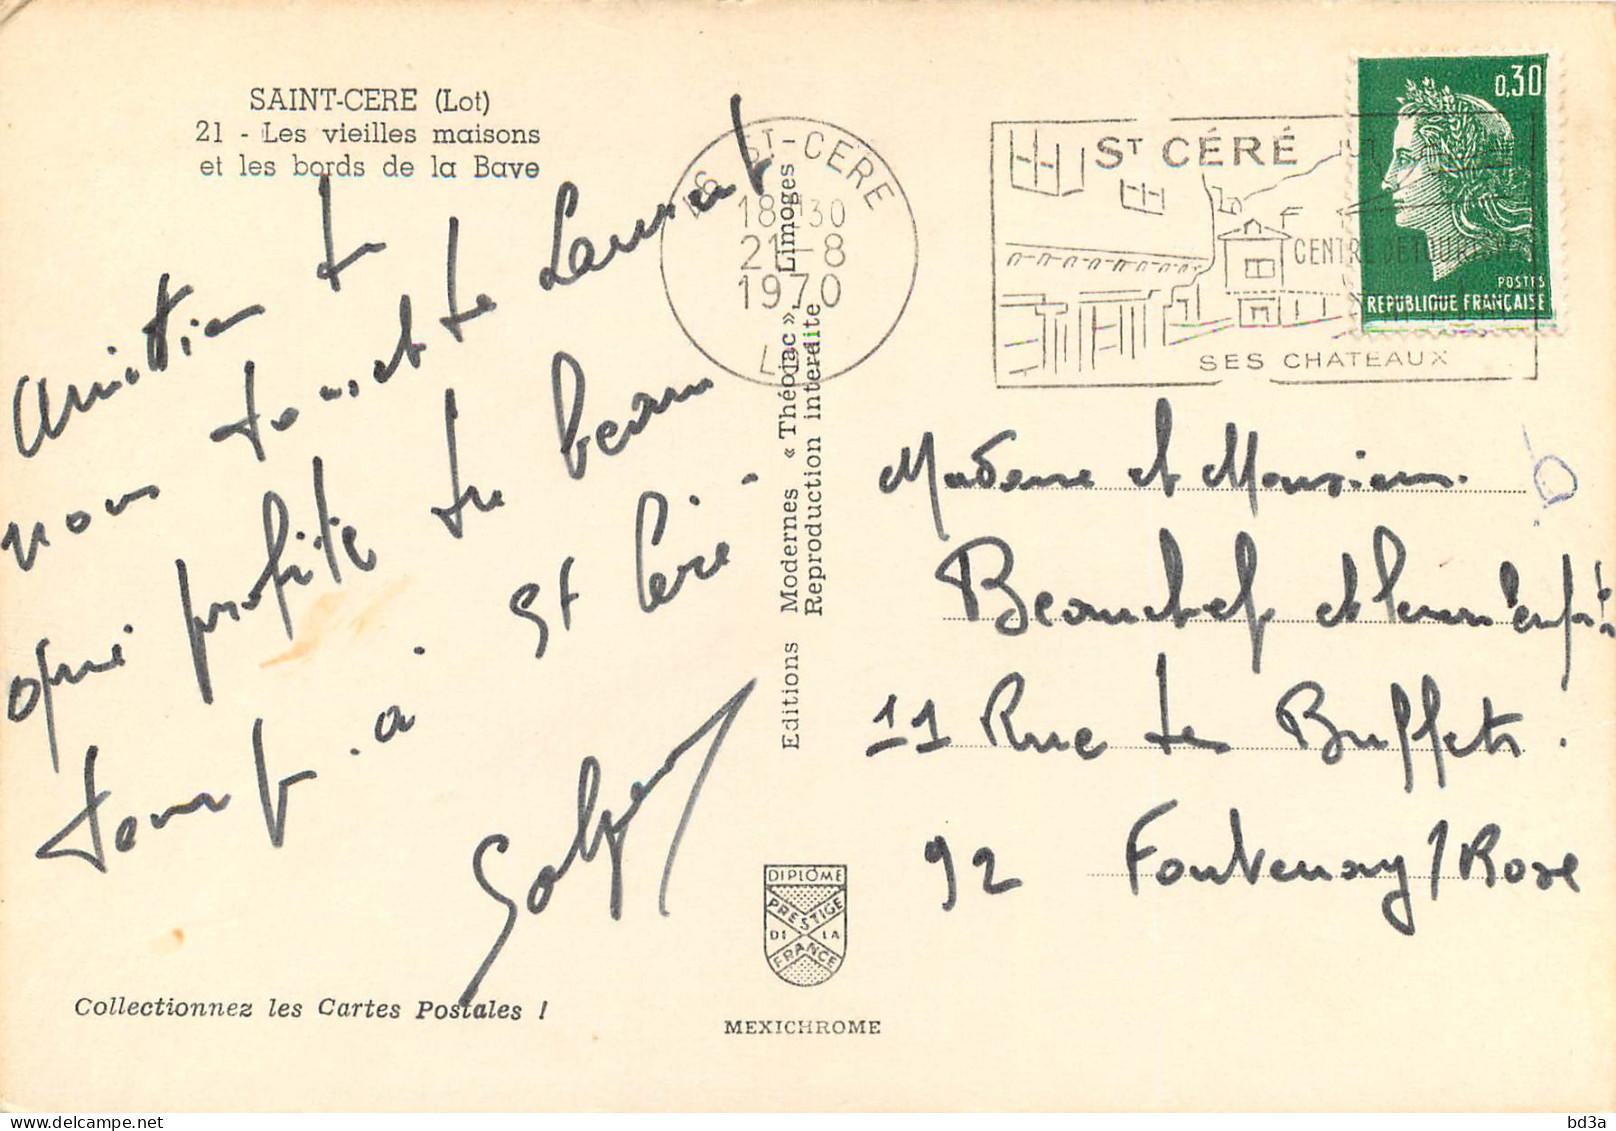 SAINT-CERE (Lot)
21 - Les vieilles maisons
et les bords de la Bave
Amitiés de
nous tous et de Laurent
qui profite du beau
temps à St Céré.
46 ST-CERE
18 H30
21-8
1970
LOT
ST CÉRÉ
CENTRE DE TOURISME
SES CHATEAUX
0,30
POSTES
REPUBLIQUE FRANÇAISE
Editions Modernes « Théojac », Limoges -
Reproduction interdite
Madame et Monsieur
Beauchef et leurs enfts
11 Rue des Buffets.
92 Fontenay/Rose
DIPLOME
PRESTIGE
DE LA
FRANCE
Collectionnez les Cartes Postales !
MEXICHROME
bd3a